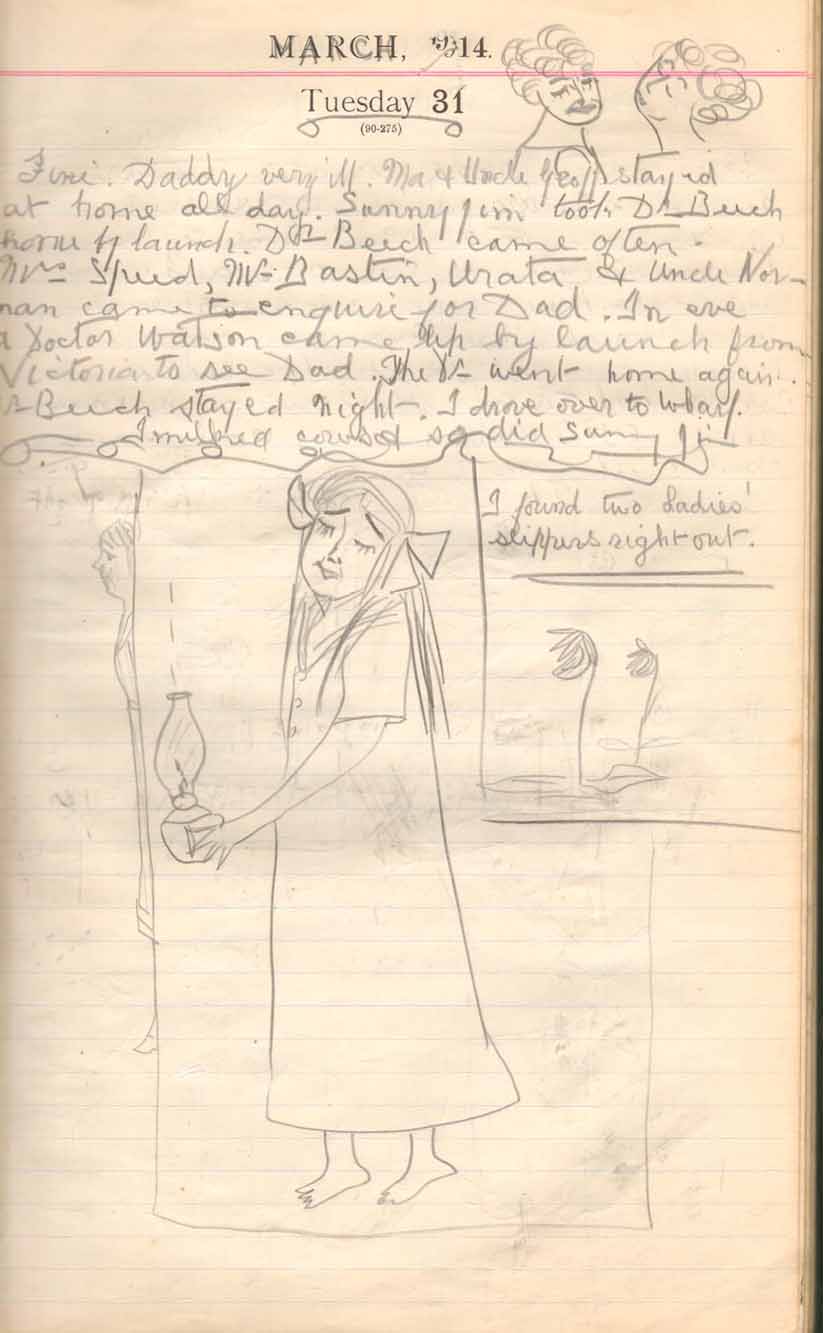 MARCH, 1914.
Tuesday 31
(90-275)
Fine. Daddy very ill. Ma & Uncle Geoff stayed
at home all day. Sunny Jim took Dr Beech
home by launch. Dr Beech came often.
Mrs Speed, Mr Bastin, Urata & Uncle Nor-
man came to enquire for Dad. In eve
a Doctor Watson came up by launch from
Victoria to see Dad. The Dr went home again.
Dr Beech stayed night. I drove over to Wharf.
I milked cows & so did Sunny Jim
I found two Ladies'
slippers right out.